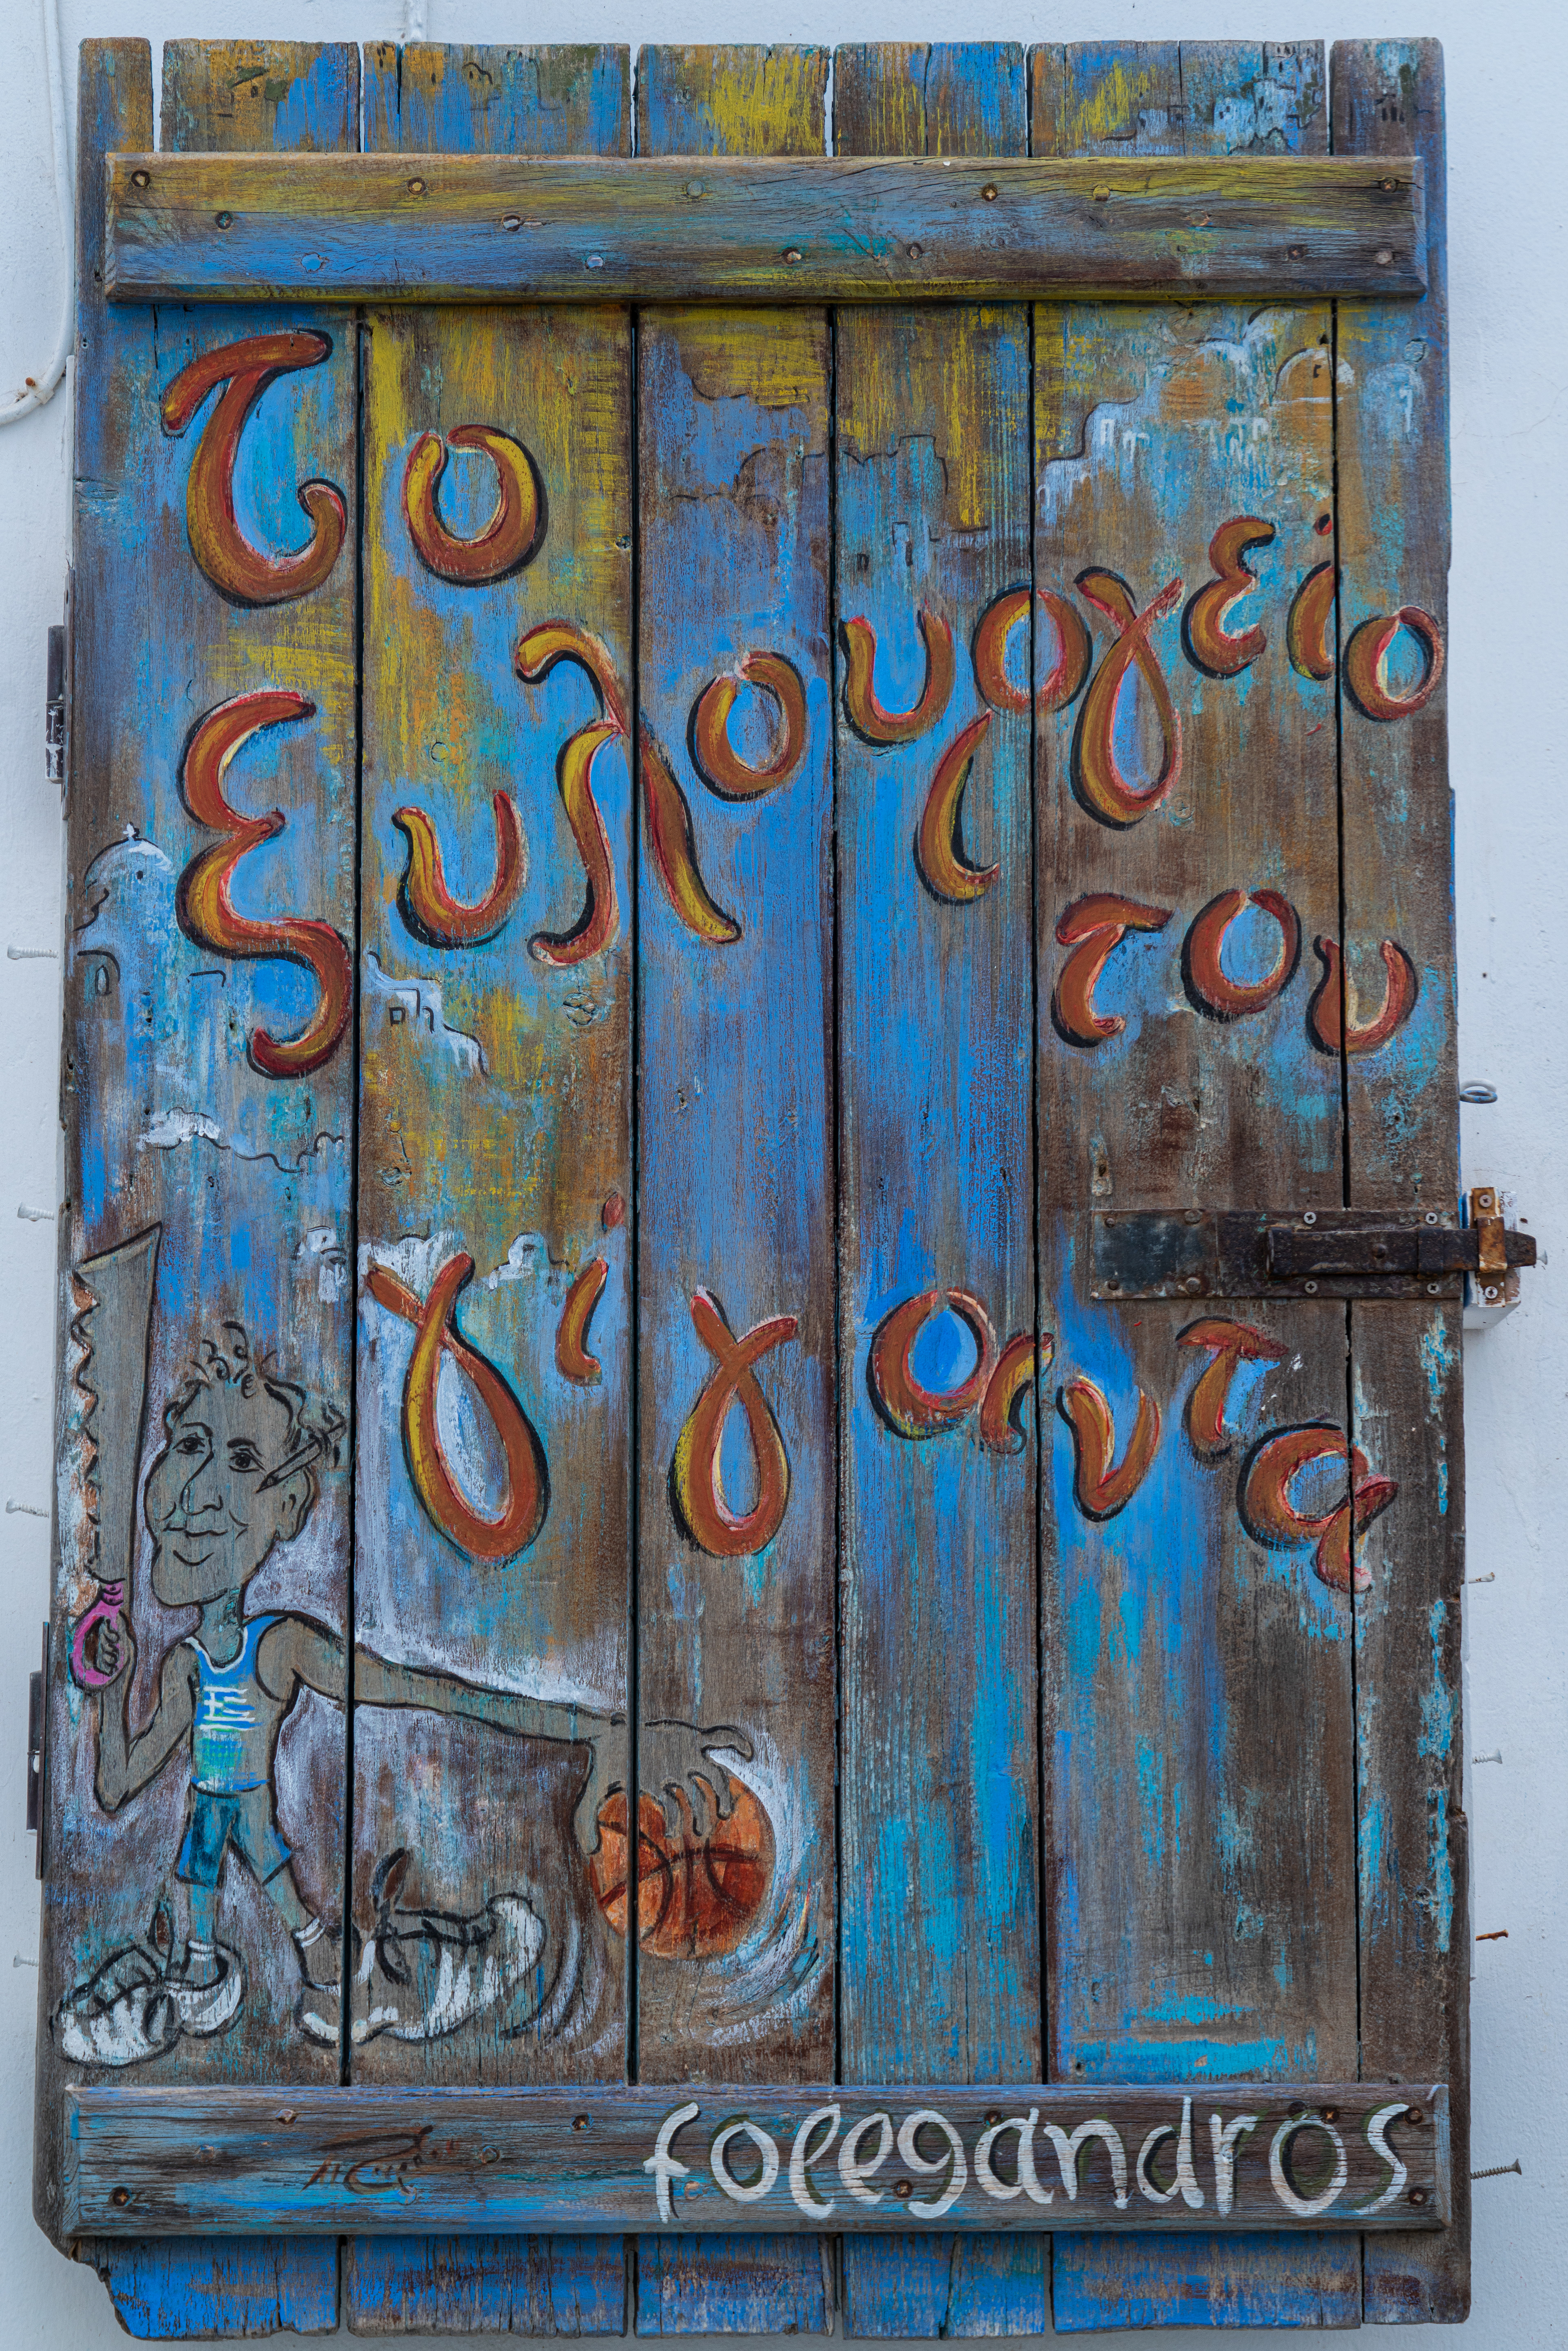 το
ξυλουργείο
του
γίγαντα
folegandros